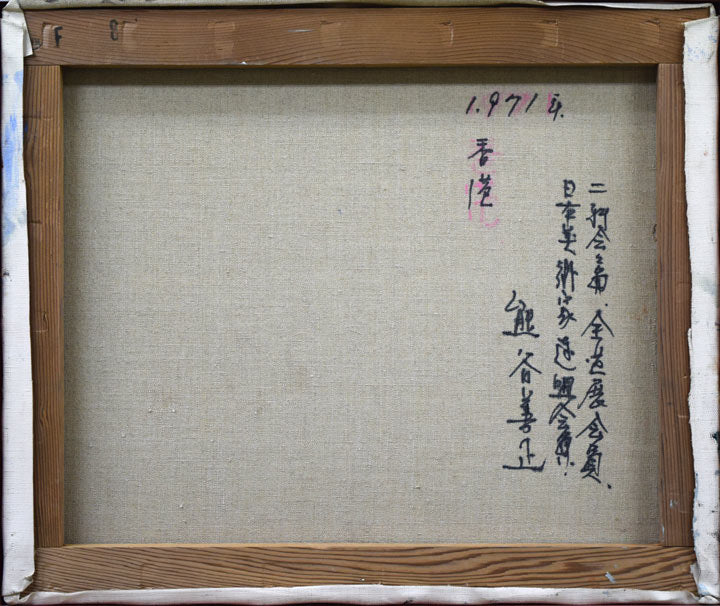 F 8
1.971年
香港
二科会々員、全道展会員、
日本美術家連盟会員.
熊谷善正